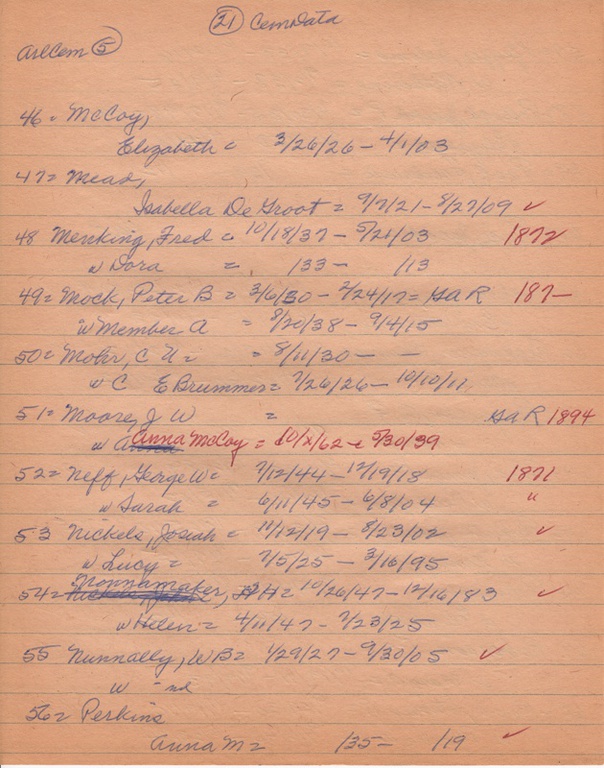 21 CemData
ArlCem 5
46 = McCoy,
Elizabeth = 3/26/26 - 4/1/03
47 = Mead,
Isabella De Groot = 9/7/21 - 8/27/09 ✓
48 Menking, Fred = 10/18/37 - 5/21/03 1872
w Dora = /33 - /13
49 = Mock, Peter B = 3/6/30 - 2/24/17 = GaR 187-
w Member A = 8/20/38 - 9/4/15
50 = Mohr, C U = = 8/11/30 - -
w C E Brummer = 7/26/26 - 10/10/11
51 = Moore, J W = GaR 1894
w Anna McCoy = 10/x/62 - 5/30/39
52 = Neff, George W = 7/12/44 - 12/19/18 1871
w Sarah = 6/11/45 - 6/8/04 "
53 Nickels, Josiah = 11/12/19 - 8/23/02 ✓
w Lucy = 7/5/25 - 3/16/95
54 = Nonnamaker, H = 10/26/47 - 12/16/83 ✓
w Helen = 4/11/47 - 7/23/25
55 Nunnally, W B = 1/29/27 - 9/30/05 ✓
w - nd
56 = Perkins
Anna M = /35 - /19 ✓